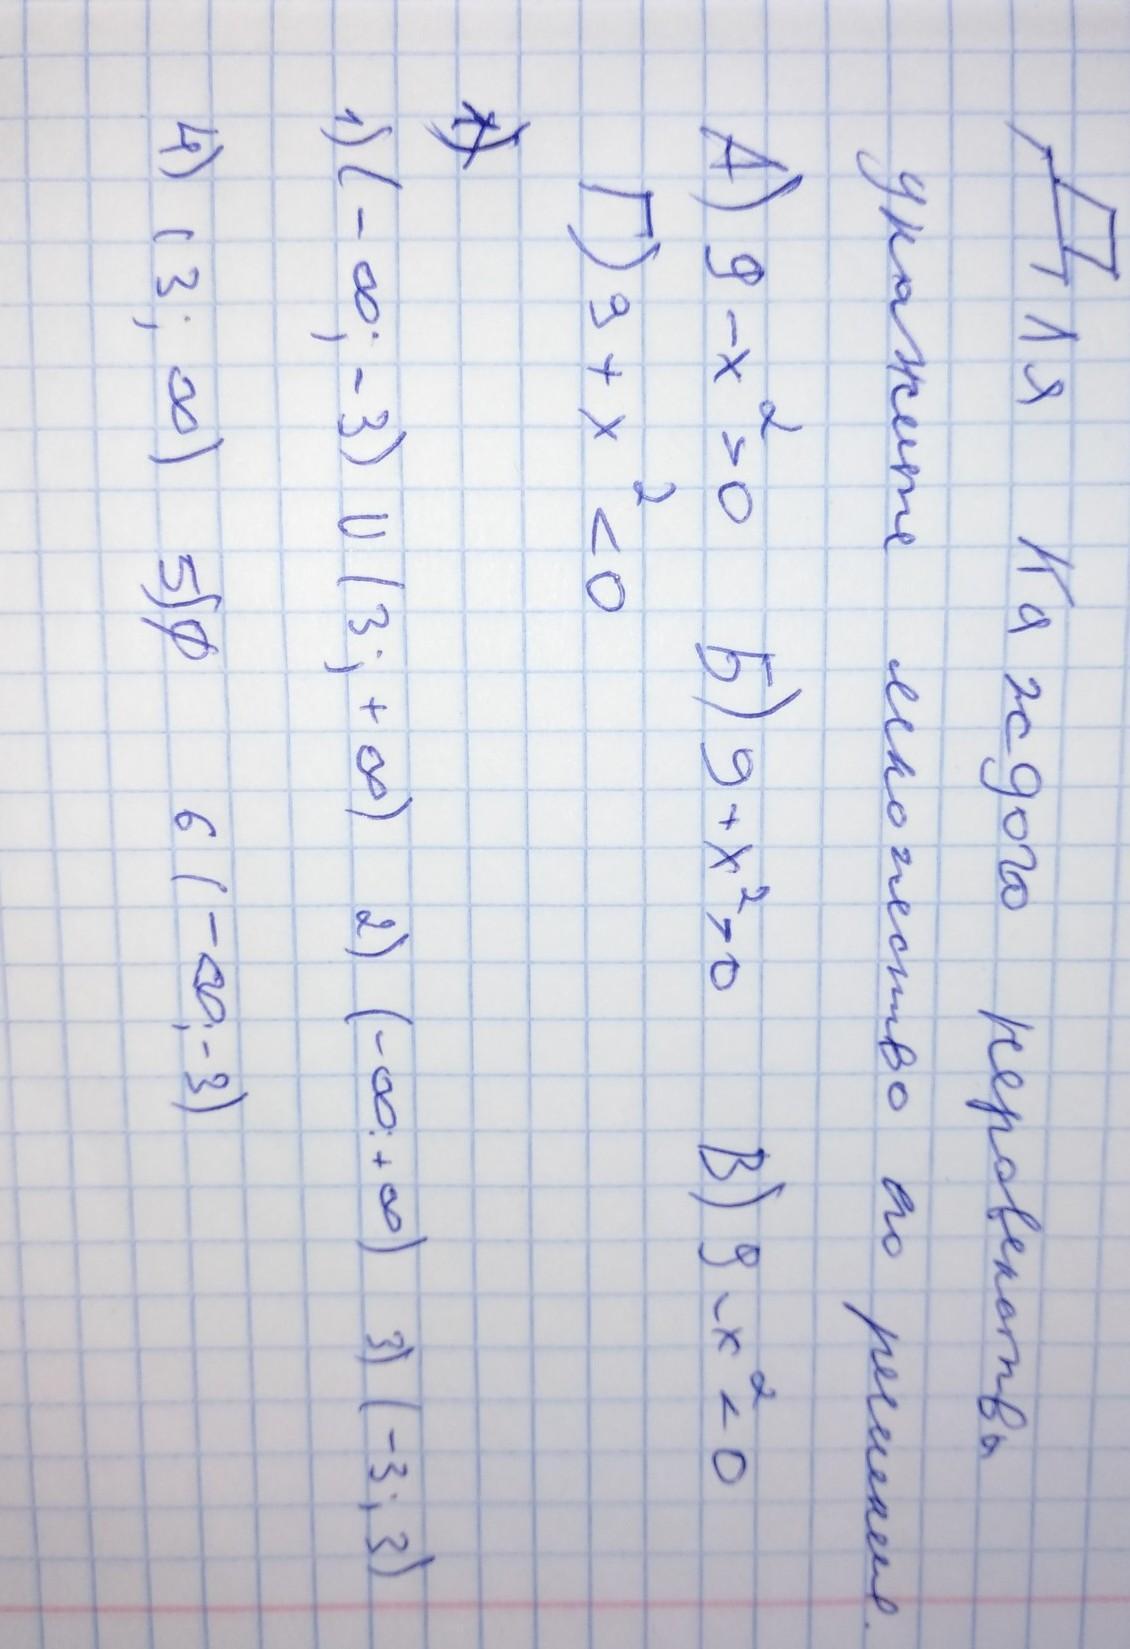 Для Каждого неравенства
укажите множество его решения.
А) 9-x²>0 Б) 9+x²>0 В) 9-x²<0
Г) 9+x²<0
1) (-∞; -3) U (3; +∞) 2) (-∞; +∞) 3) (-3; 3)
4) (3; ∞) 5) ∅ 6 (-∞; -3)